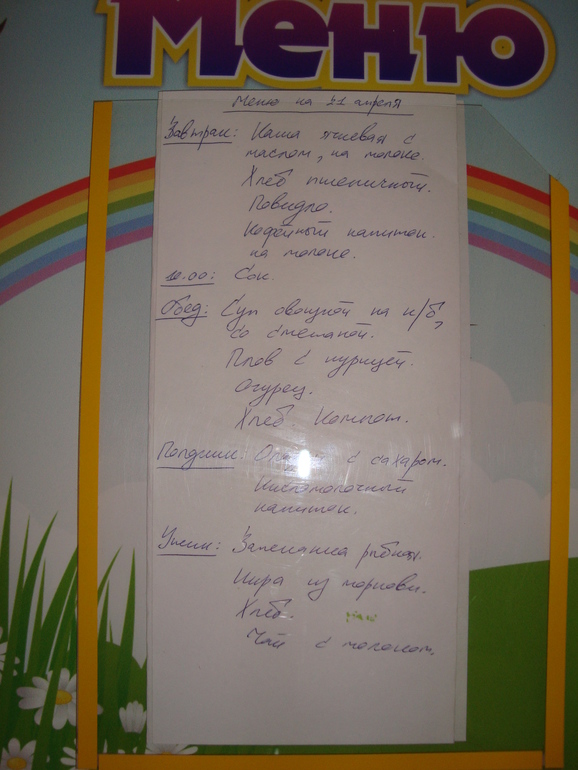 Меню
Меню на 21 апреля
Завтрак: Каша ячневая с
маслом, на молоке.
Хлеб пшеничный.
Повидло.
Кофейный напиток
на молоке.
10.00: Сок.
Обед: Суп овощной на к/б,
со сметаной.
Плов с курицей.
Огурец.
Хлеб. Компот.
Полдник: с сахаром.
Кисломолочный
напиток.
Ужин: Запеканка рыбная.
Икра из моркови.
Хлеб.
Чай с молоком.